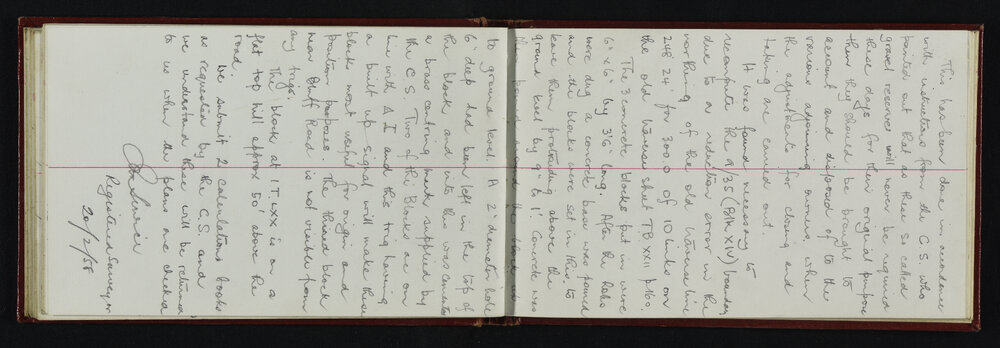 This has been done in accordance
with instructions from the C.S. who
pointed out that as these so called
gravel reserves will never be required
these days for their original purpose
then they should be brought to
account and disposed of to the
various adjoining owners when
the adjustments for closing and
taking are carried out.
It was found necessary to
recompute the 9/35 (Blk XIV) boundary
due to a reduction error in the
working of the old traverse line
248° 24' for 300.0 of 10 links on
the old traverse sheet TB XXII p160.
The 3 concrete blocks put in were
6" x 6" by 3'6" long. After the holes
were dug a concrete base was poured
and the blocks were set in this to
leave them protruding above the
ground level by 9" to 1'. Concrete was
then poured around the block
to ground level. A 2" diameter hole
6" deep had been left in the top of
the block and into this was cemented
a brass centring mark supplied by
the C.S. Two of the Blocks are on
line with Δ I and this trig having
a built up signal will make these
blocks most useful for origin and
position purposes. The third block
near Bluff Road is not visible from
any trig.
This block at I.T. LXX is on a
flat top hill approx 50' above the
road.
We submit 2 calculations books
as requested by the C.S. and
we understand these will be returned
to us when the plans are checked
Registered Surveyor
20/2/56